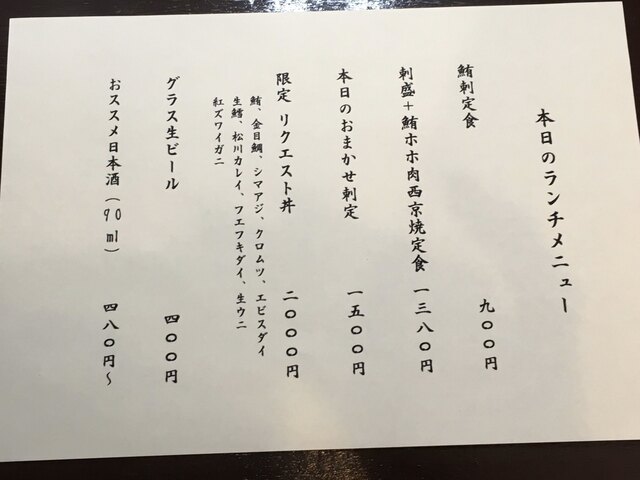 本日のランチメニュー
鮪刺定食 九〇〇円
刺盛+鮪ホホ肉西京焼定食 一三八〇円
本日のおまかせ刺定 一五〇〇円
限定 リクエスト丼 二〇〇〇円
鮪、金目鯛、シマアジ、クロムツ、エビスダイ
生鱈、松川カレイ、フエフキダイ、生ウニ
紅ズワイガニ
グラス生ビール 四〇〇円
おススメ日本酒(90ml) 四八〇円~